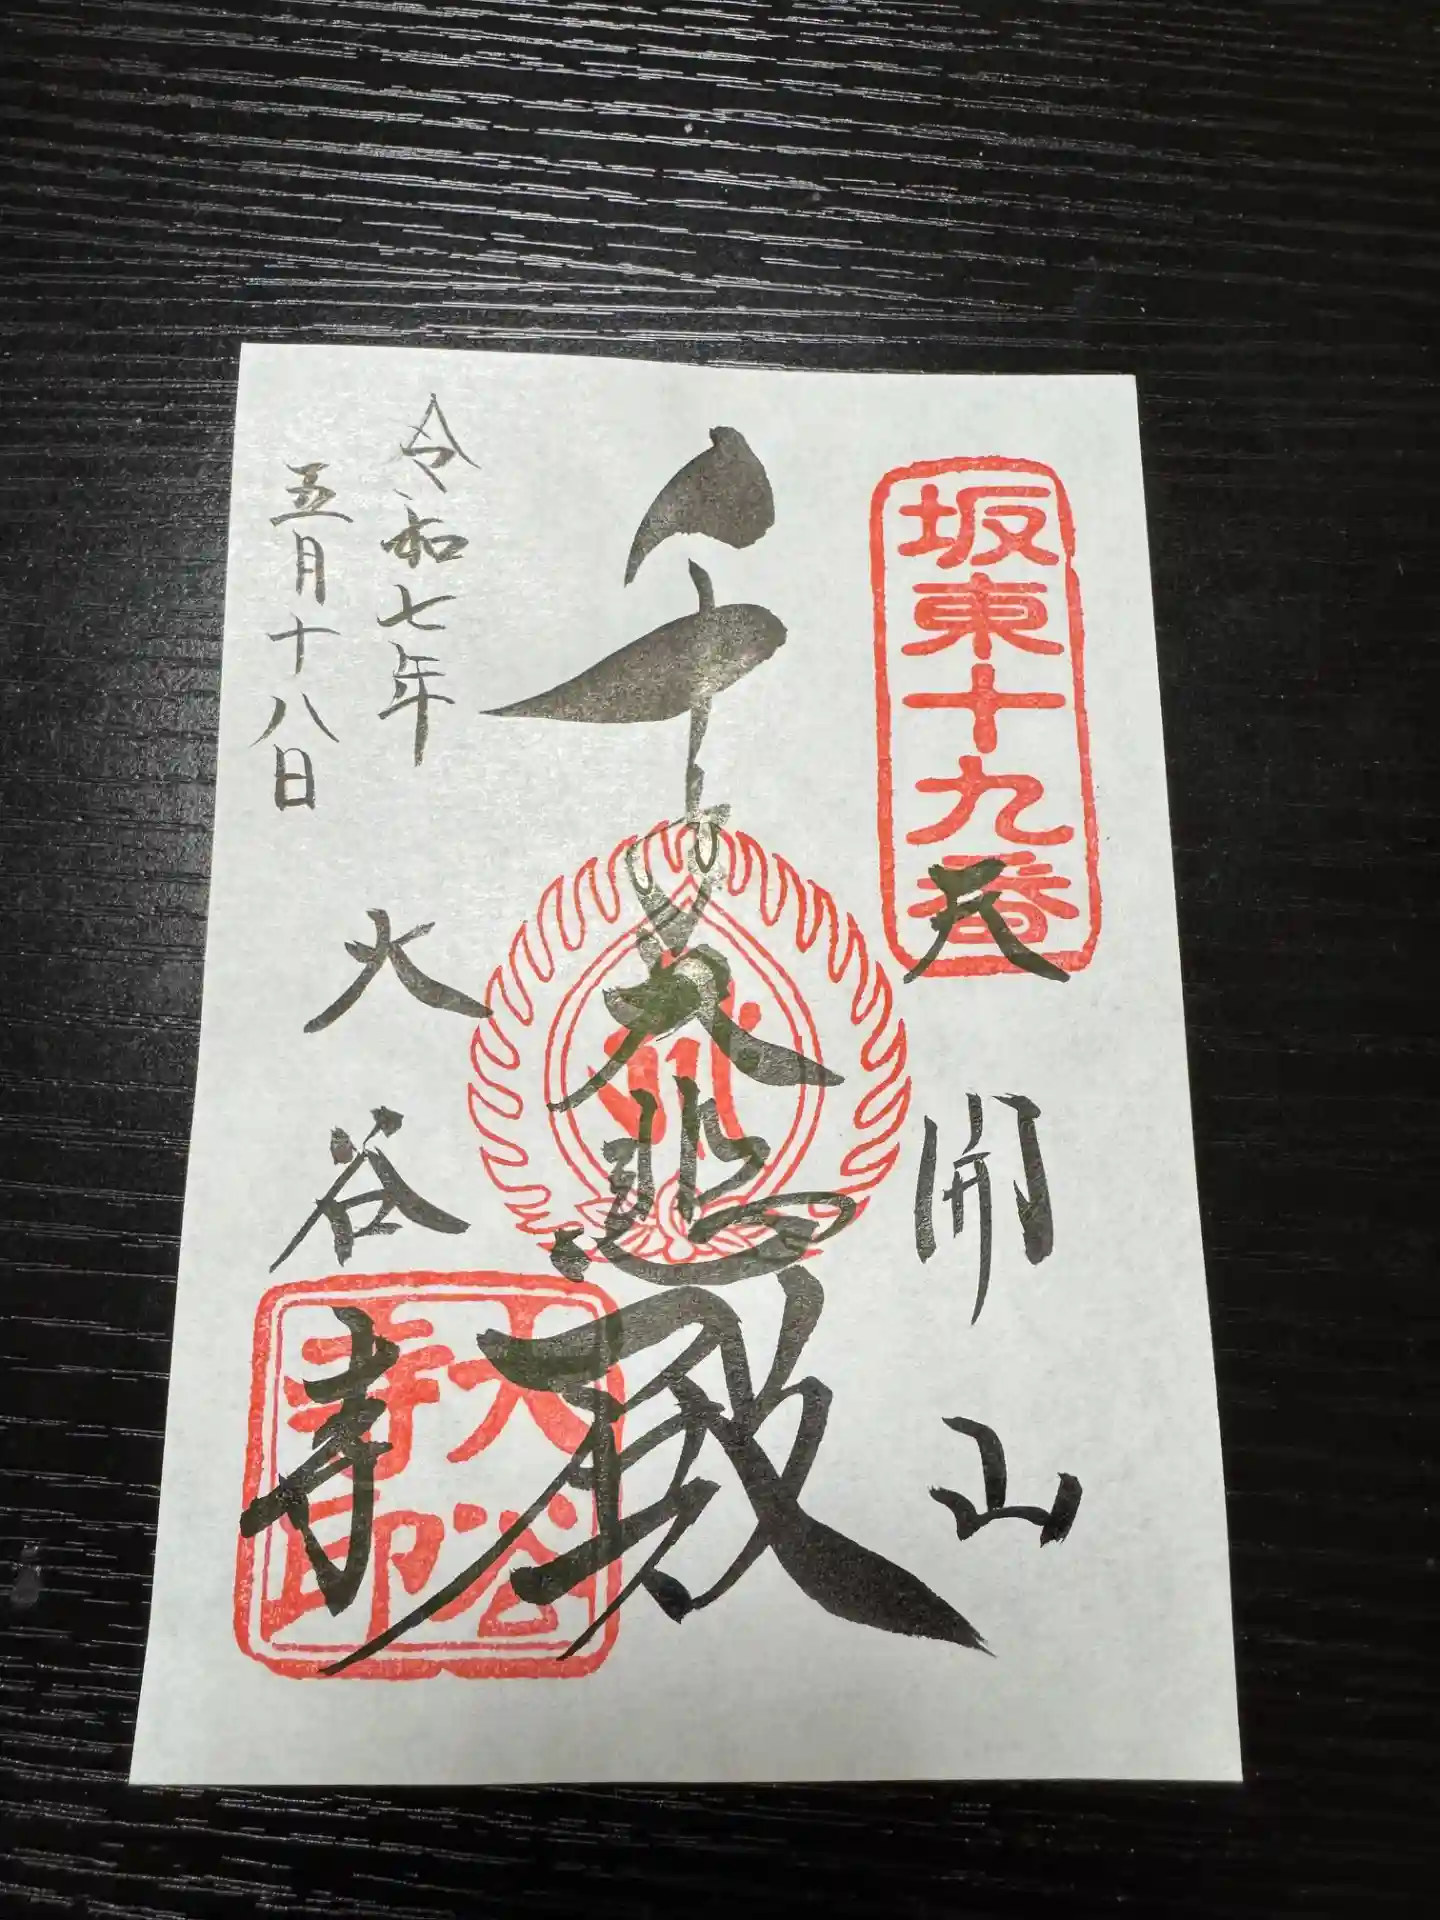 坂東十九番
天開山
千手大悲殿
令和七年
五月十八日
大谷寺
大谷
寺印